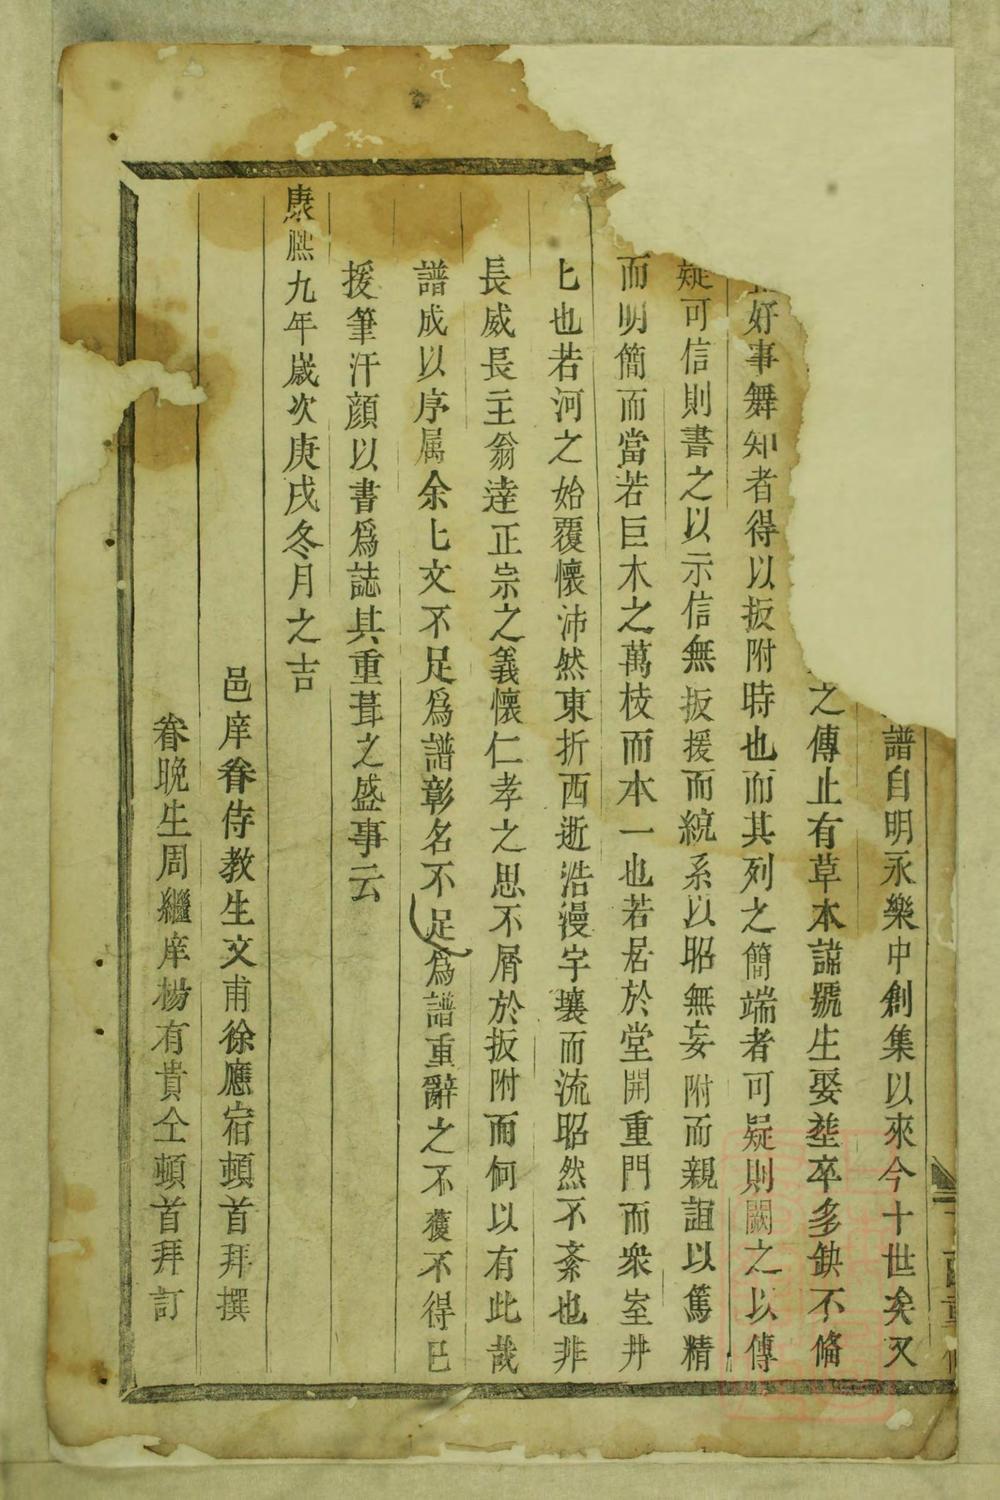 譜自明永樂中創集以來今十世矣又
之傳止有草本諱號生娶塟卒多缺不偹
好事舞知者得以扳附時也而其列之簡端者可疑則闕之以傳
疑可信則書之以示信無扳援而統系以昭無妄附而親誼以篤精
而明簡而當若巨木之萬枝而本一也若居於堂開重門而衆室井
匕也若河之始覆懷沛然東折西逝浩漫宇壤而流昭然不紊也非
長威長主翁逹正宗之義懷仁孝之思不屑於扳附而何以有此哉
譜成以序属余匕文不足爲譜彰名不足爲譜重辭之不獲不得已
援筆汗顔以書爲誌其重葺之盛事云
康熈九年歲次庚戌冬月之吉
邑庠眷侍教生文甫徐應宿頓首拜撰
眷晚生周繼庠楊有貴仝頓首拜訂